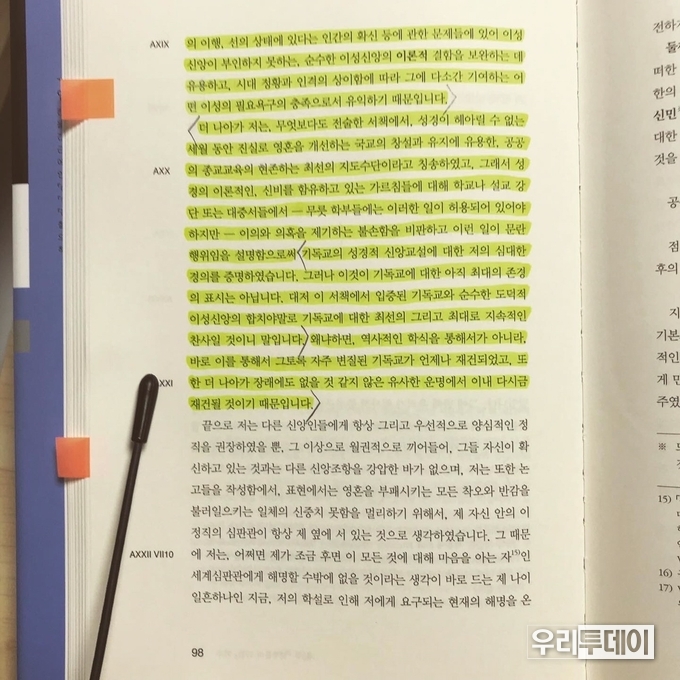 AXIX
의 이행, 선의 상태에 있다는 인간의 확신 등에 관한 문제들에 있어 이성
신앙이 부인하지 못하는, 순수한 이성신앙의 이론적 결함을 보완하는 데
유용하고, 시대 정황과 인격의 상이함에 따라 그에 다소간 기여하는 어
떤 이성의 필요욕구의 충족으로서 유익하기 때문입니다.
더 나아가 저는, 무엇보다도 전술한 서책에서, 성경이 헤아릴 수 없는
세월 동안 진실로 영혼을 개선하는 국교의 창설과 유지에 유용한, 공공
AXX
의 종교교육의 현존하는 최선의 지도수단이라고 칭송하였고, 그래서 성
경의 이론적인, 신비를 함유하고 있는 가르침들에 대해 학교나 설교 강
단 또는 대중서들에서 — 무릇 학부들에는 이러한 일이 허용되어 있어야
하지만 — 이의와 의혹을 제기하는 불손함을 비판하고 이런 일이 문란
행위임을 설명함으로써 기독교의 성경적 신앙교설에 대한 저의 심대한
경의를 증명하였습니다. 그러나 이것이 기독교에 대한 아직 최대의 존경
의 표시는 아닙니다. 대저 이 서책에서 입증된 기독교와 순수한 도덕적
이성신앙의 합치야말로 기독교에 대한 최선의 그리고 최대로 지속적인
찬사일 것이니 말입니다. 왜냐하면, 역사적인 학식을 통해서가 아니라,
바로 이를 통해서 그토록 자주 변질된 기독교가 언제나 재건되었고, 또
XXI
한 더 나아가 장래에도 없을 것 같지 않은 유사한 운명에서 이내 다시금
재건될 것이기 때문입니다.
끝으로 저는 다른 신앙인들에게 항상 그리고 우선적으로 양심적인 정
직을 권장하였을 뿐, 그 이상으로 월권적으로 끼어들어, 그들 자신이 확
신하고 있는 것과는 다른 신앙조항을 강압한 바가 없으며, 저는 또한 논
고들을 작성함에서, 표현에서는 영혼을 부패시키는 모든 착오와 반감을
불러일으키는 일체의 신중치 못함을 멀리하기 위해서, 제 자신 안의 이
정직의 심판관이 항상 제 옆에 서 있는 것으로 생각하였습니다. 그 때문
AXXII VII10
에 저는, 어쩌면 제가 조금 후면 이 모든 것에 대해 마음을 아는 자15)인
세계심판관에게 해명할 수밖에 없을 것이라는 생각이 바로 드는 제 나이
일흔하나인 지금, 저의 학설로 인해 저에게 요구되는 현재의 해명을 온
98
전하지
둘째
떠한
한의
신민
대한
것을
공
점
후의
지
기본
적인
게 만
주였
※
15)
16)
17)
우리투데이